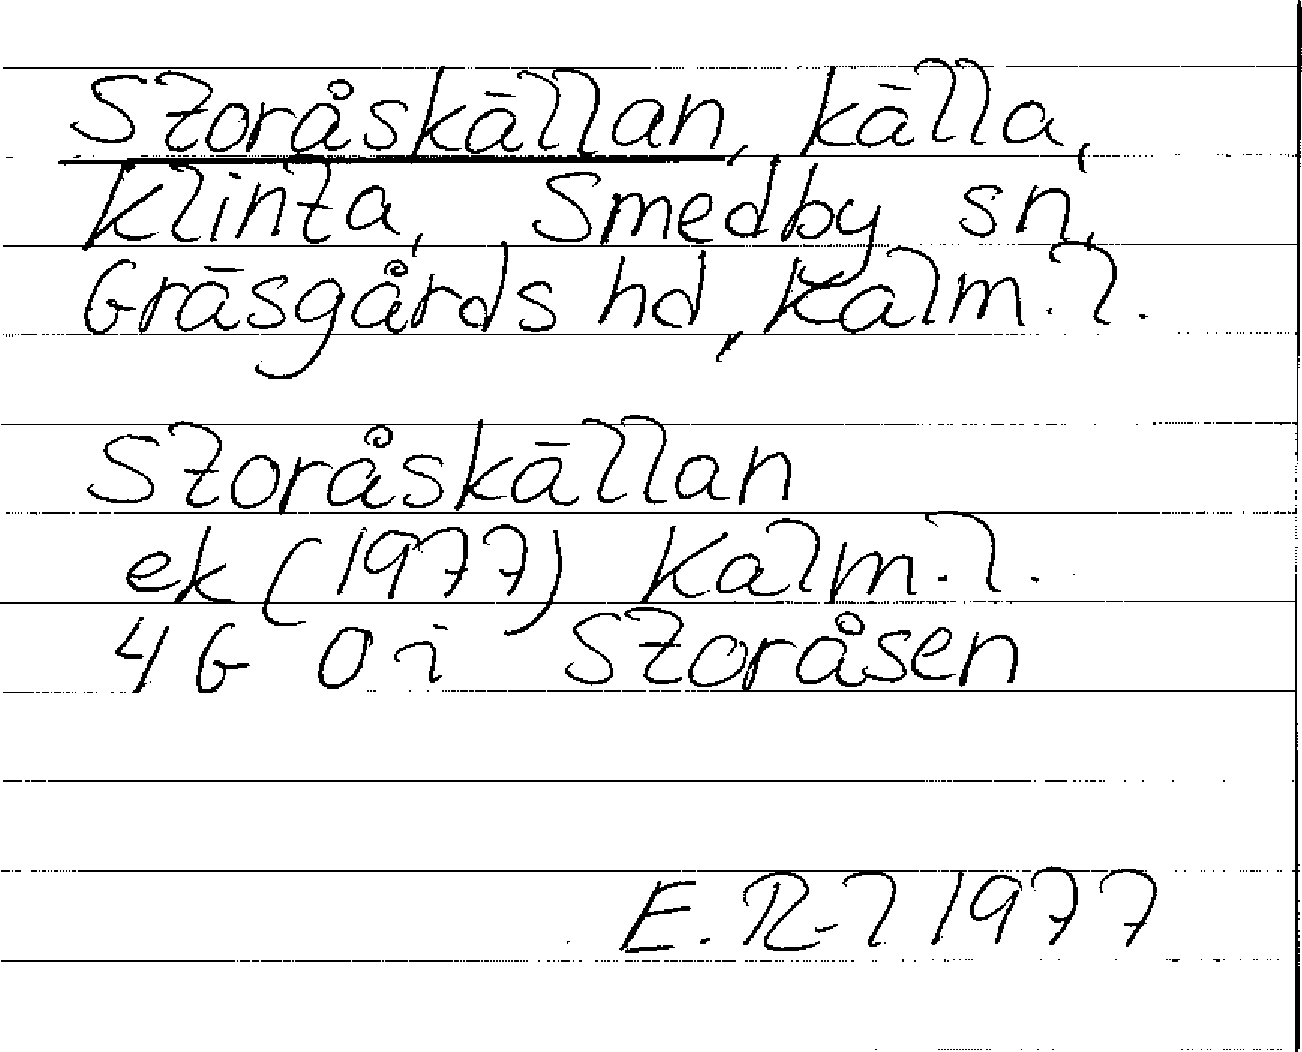 Storåskällan, källa,
Klinta, Smedby sn,
Gräsgårds hd, Kalm. l.
Storåskällan
ek (1977) Kalm. l.
4 G 0 i Storåsen
E. R-l 1977